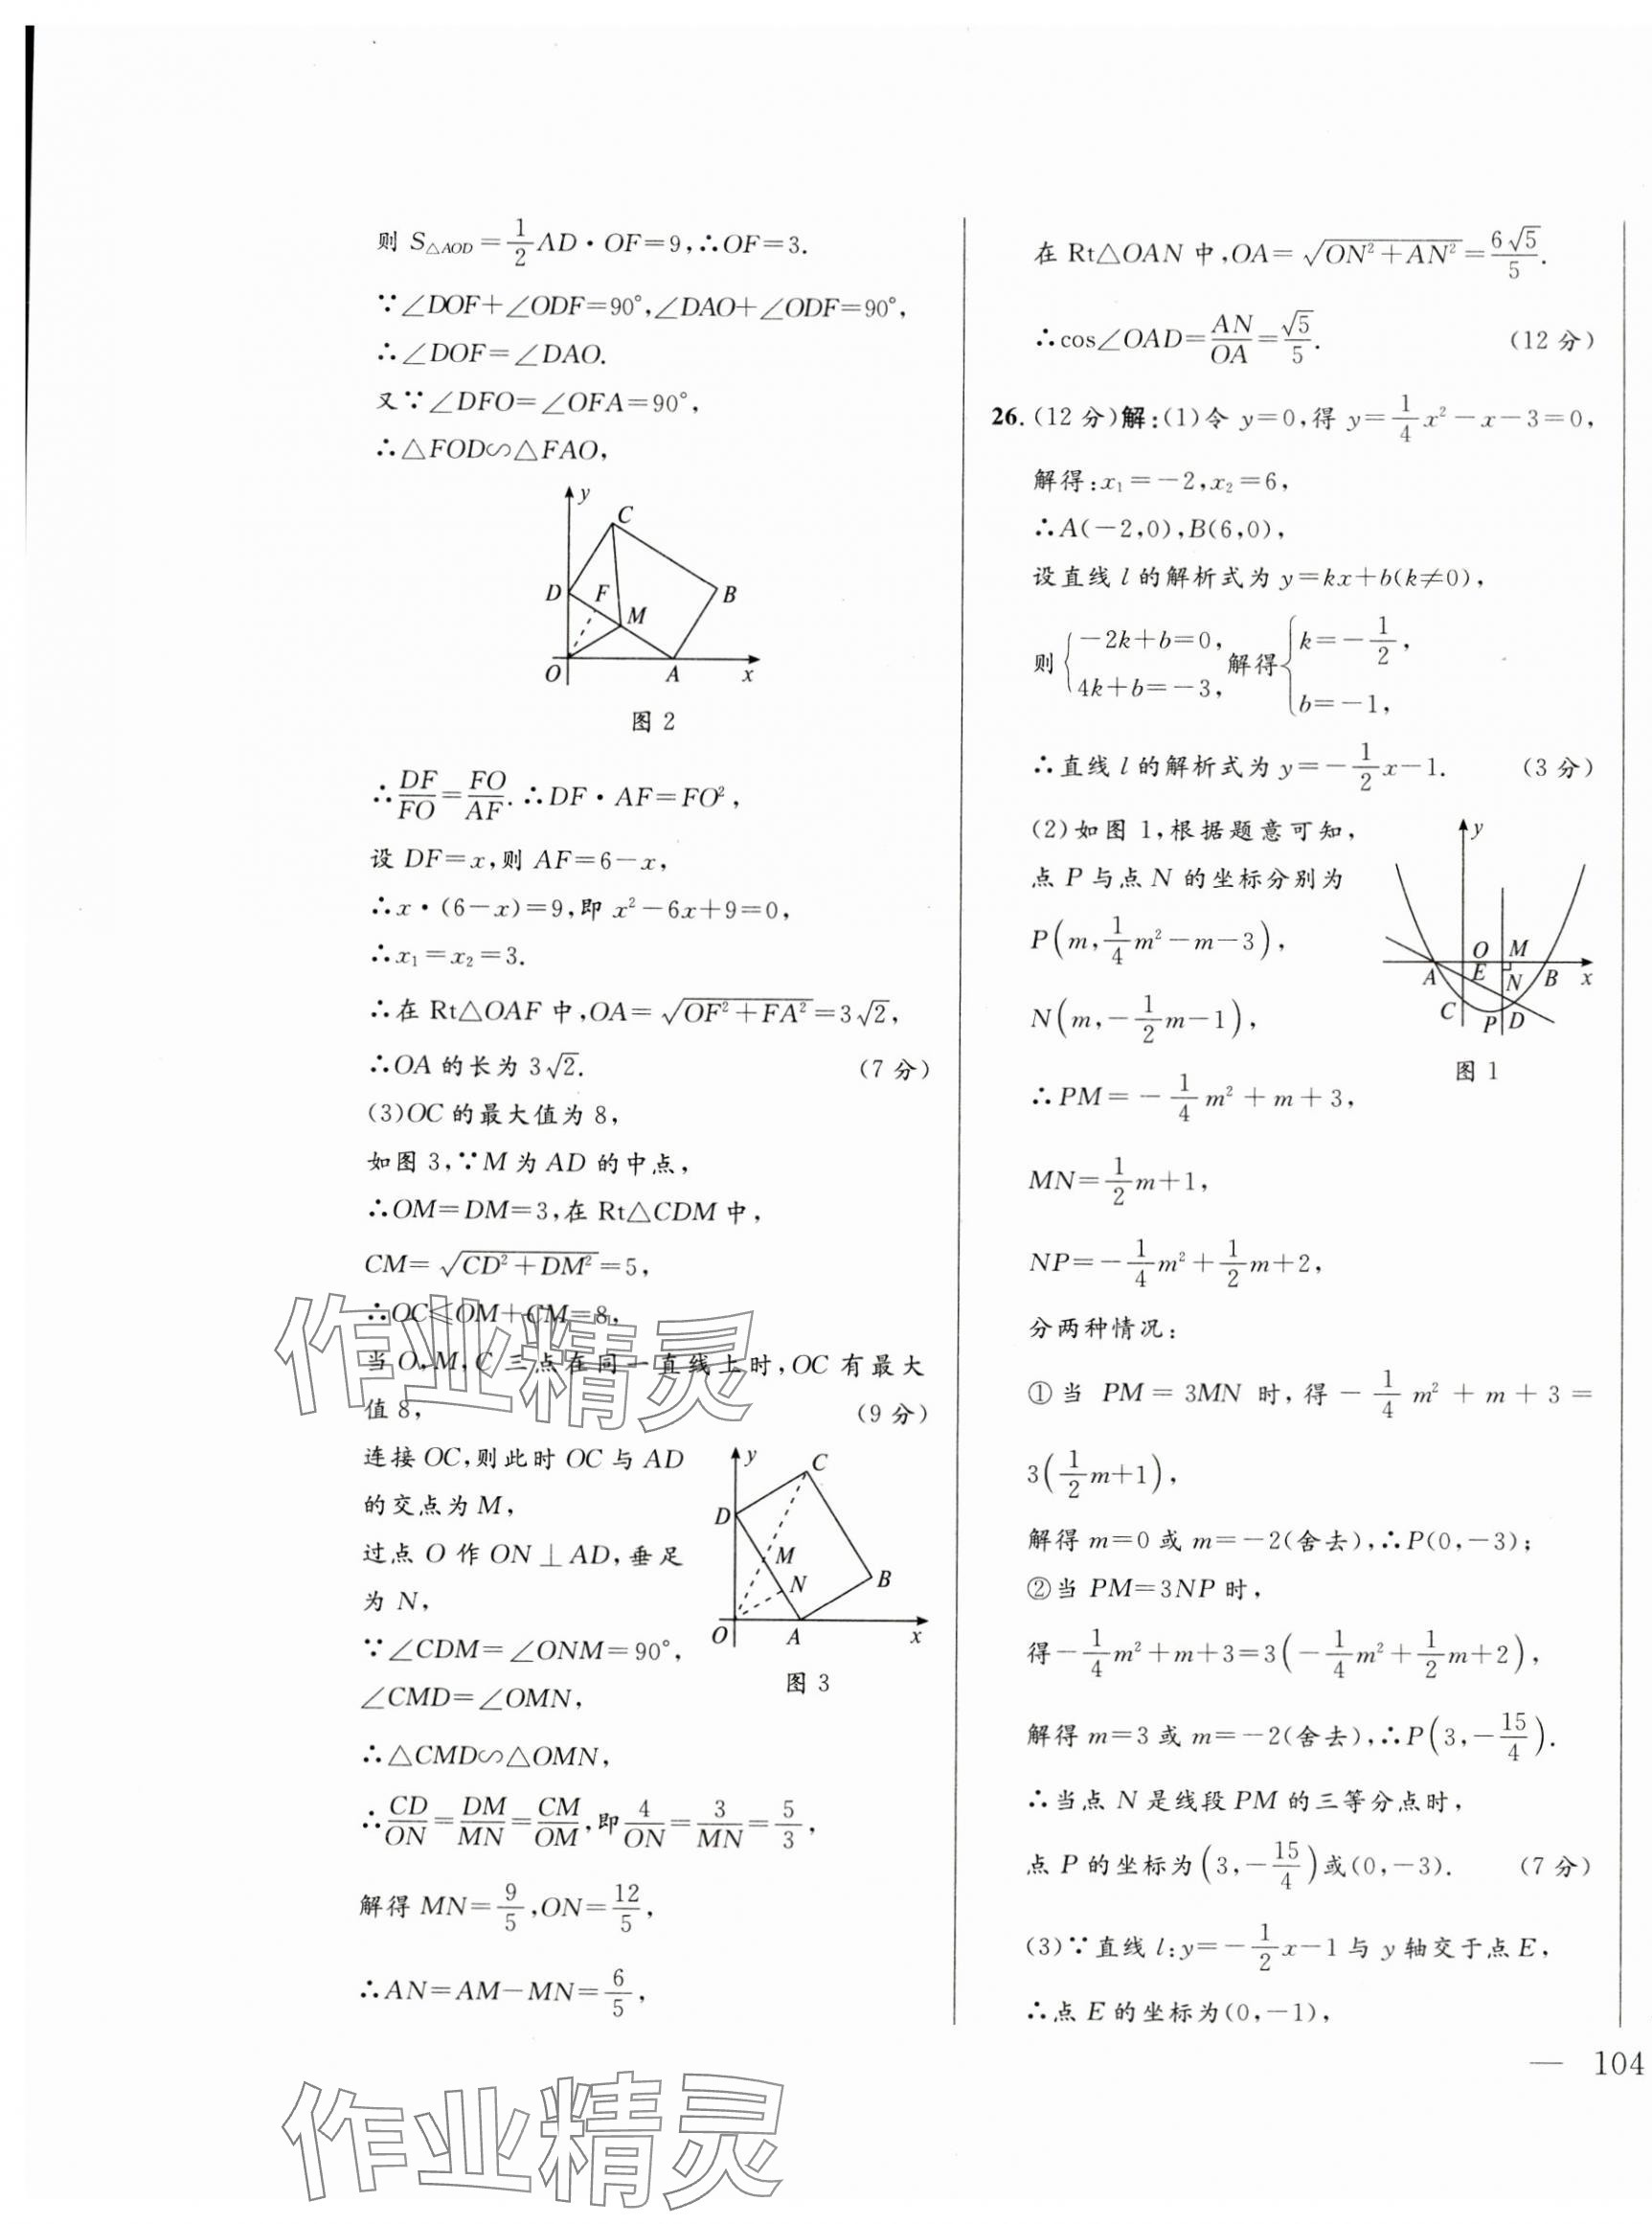 则 S△AOD=1/2 AD·OF=9,∴OF=3.
∵∠DOF+∠ODF=90°,∠DAO+∠ODF=90°,
∴∠DOF=∠DAO.
又∵∠DFO=∠OFA=90°,
∴△FOD∽△FAO,
y
C
D F B
M
O A x
图 2
∴DF/FO=FO/AF.∴DF·AF=FO²,
设 DF=x,则 AF=6-x,
∴x·(6-x)=9,即 x²-6x+9=0,
∴x₁=x₂=3.
∴在 Rt△OAF 中,OA=√(OF²+FA²)=3√2,
∴OA 的长为 3√2. (7 分)
(3)OC 的最大值为 8,
如图 3,∵M 为 AD 的中点,
∴OM=DM=3,在 Rt△CDM 中,
CM=√(CD²+DM²)=5,
∴OC≤OM+CM=8,
当 O,M,C 三点在同一直线上时,OC 有最大
值 8, (9 分)
连接 OC,则此时 OC 与 AD
的交点为 M,
过点 O 作 ON⊥AD,垂足
为 N,
∵∠CDM=∠ONM=90°,
∠CMD=∠OMN,
y
C
D
M
N B
O A x
图 3
∴△CMD∽△OMN,
∴CD/ON=DM/MN=CM/OM,即4/ON=3/MN=5/3,
解得 MN=9/5,ON=12/5,
∴AN=AM-MN=6/5,
在 Rt△OAN 中,OA=√(ON²+AN²)=6√5/5.
∴cos∠OAD=AN/OA=√5/5. (12 分)
26.(12 分)解:(1)令 y=0,得 y=1/4 x²-x-3=0,
解得:x₁=-2,x₂=6,
∴A(-2,0),B(6,0),
设直线 l 的解析式为 y=kx+b(k≠0),
则{-2k+b=0, 4k+b=-3, 解得{k=-1/2, b=-1,
∴直线 l 的解析式为 y=-1/2 x-1. (3 分)
(2)如图 1,根据题意可知,
点 P 与点 N 的坐标分别为
P(m,1/4 m²-m-3),
N(m,-1/2 m-1),
y
O M
A E N B x
C P D
图 1
∴PM=-1/4 m²+m+3,
MN=1/2 m+1,
NP=-1/4 m²+1/2 m+2,
分两种情况:
①当 PM=3MN 时,得-1/4 m²+m+3=
3(1/2 m+1),
解得 m=0 或 m=-2(舍去),∴P(0,-3);
②当 PM=3NP 时,
得-1/4 m²+m+3=3(-1/4 m²+1/2 m+2),
解得 m=3 或 m=-2(舍去),∴P(3,-15/4).
∴当点 N 是线段 PM 的三等分点时,
点 P 的坐标为(3,-15/4)或(0,-3). (7 分)
(3)∵直线 l:y=-1/2 x-1 与 y 轴交于点 E,
∴点 E 的坐标为(0,-1),
— 104
作业精灵
作业精灵